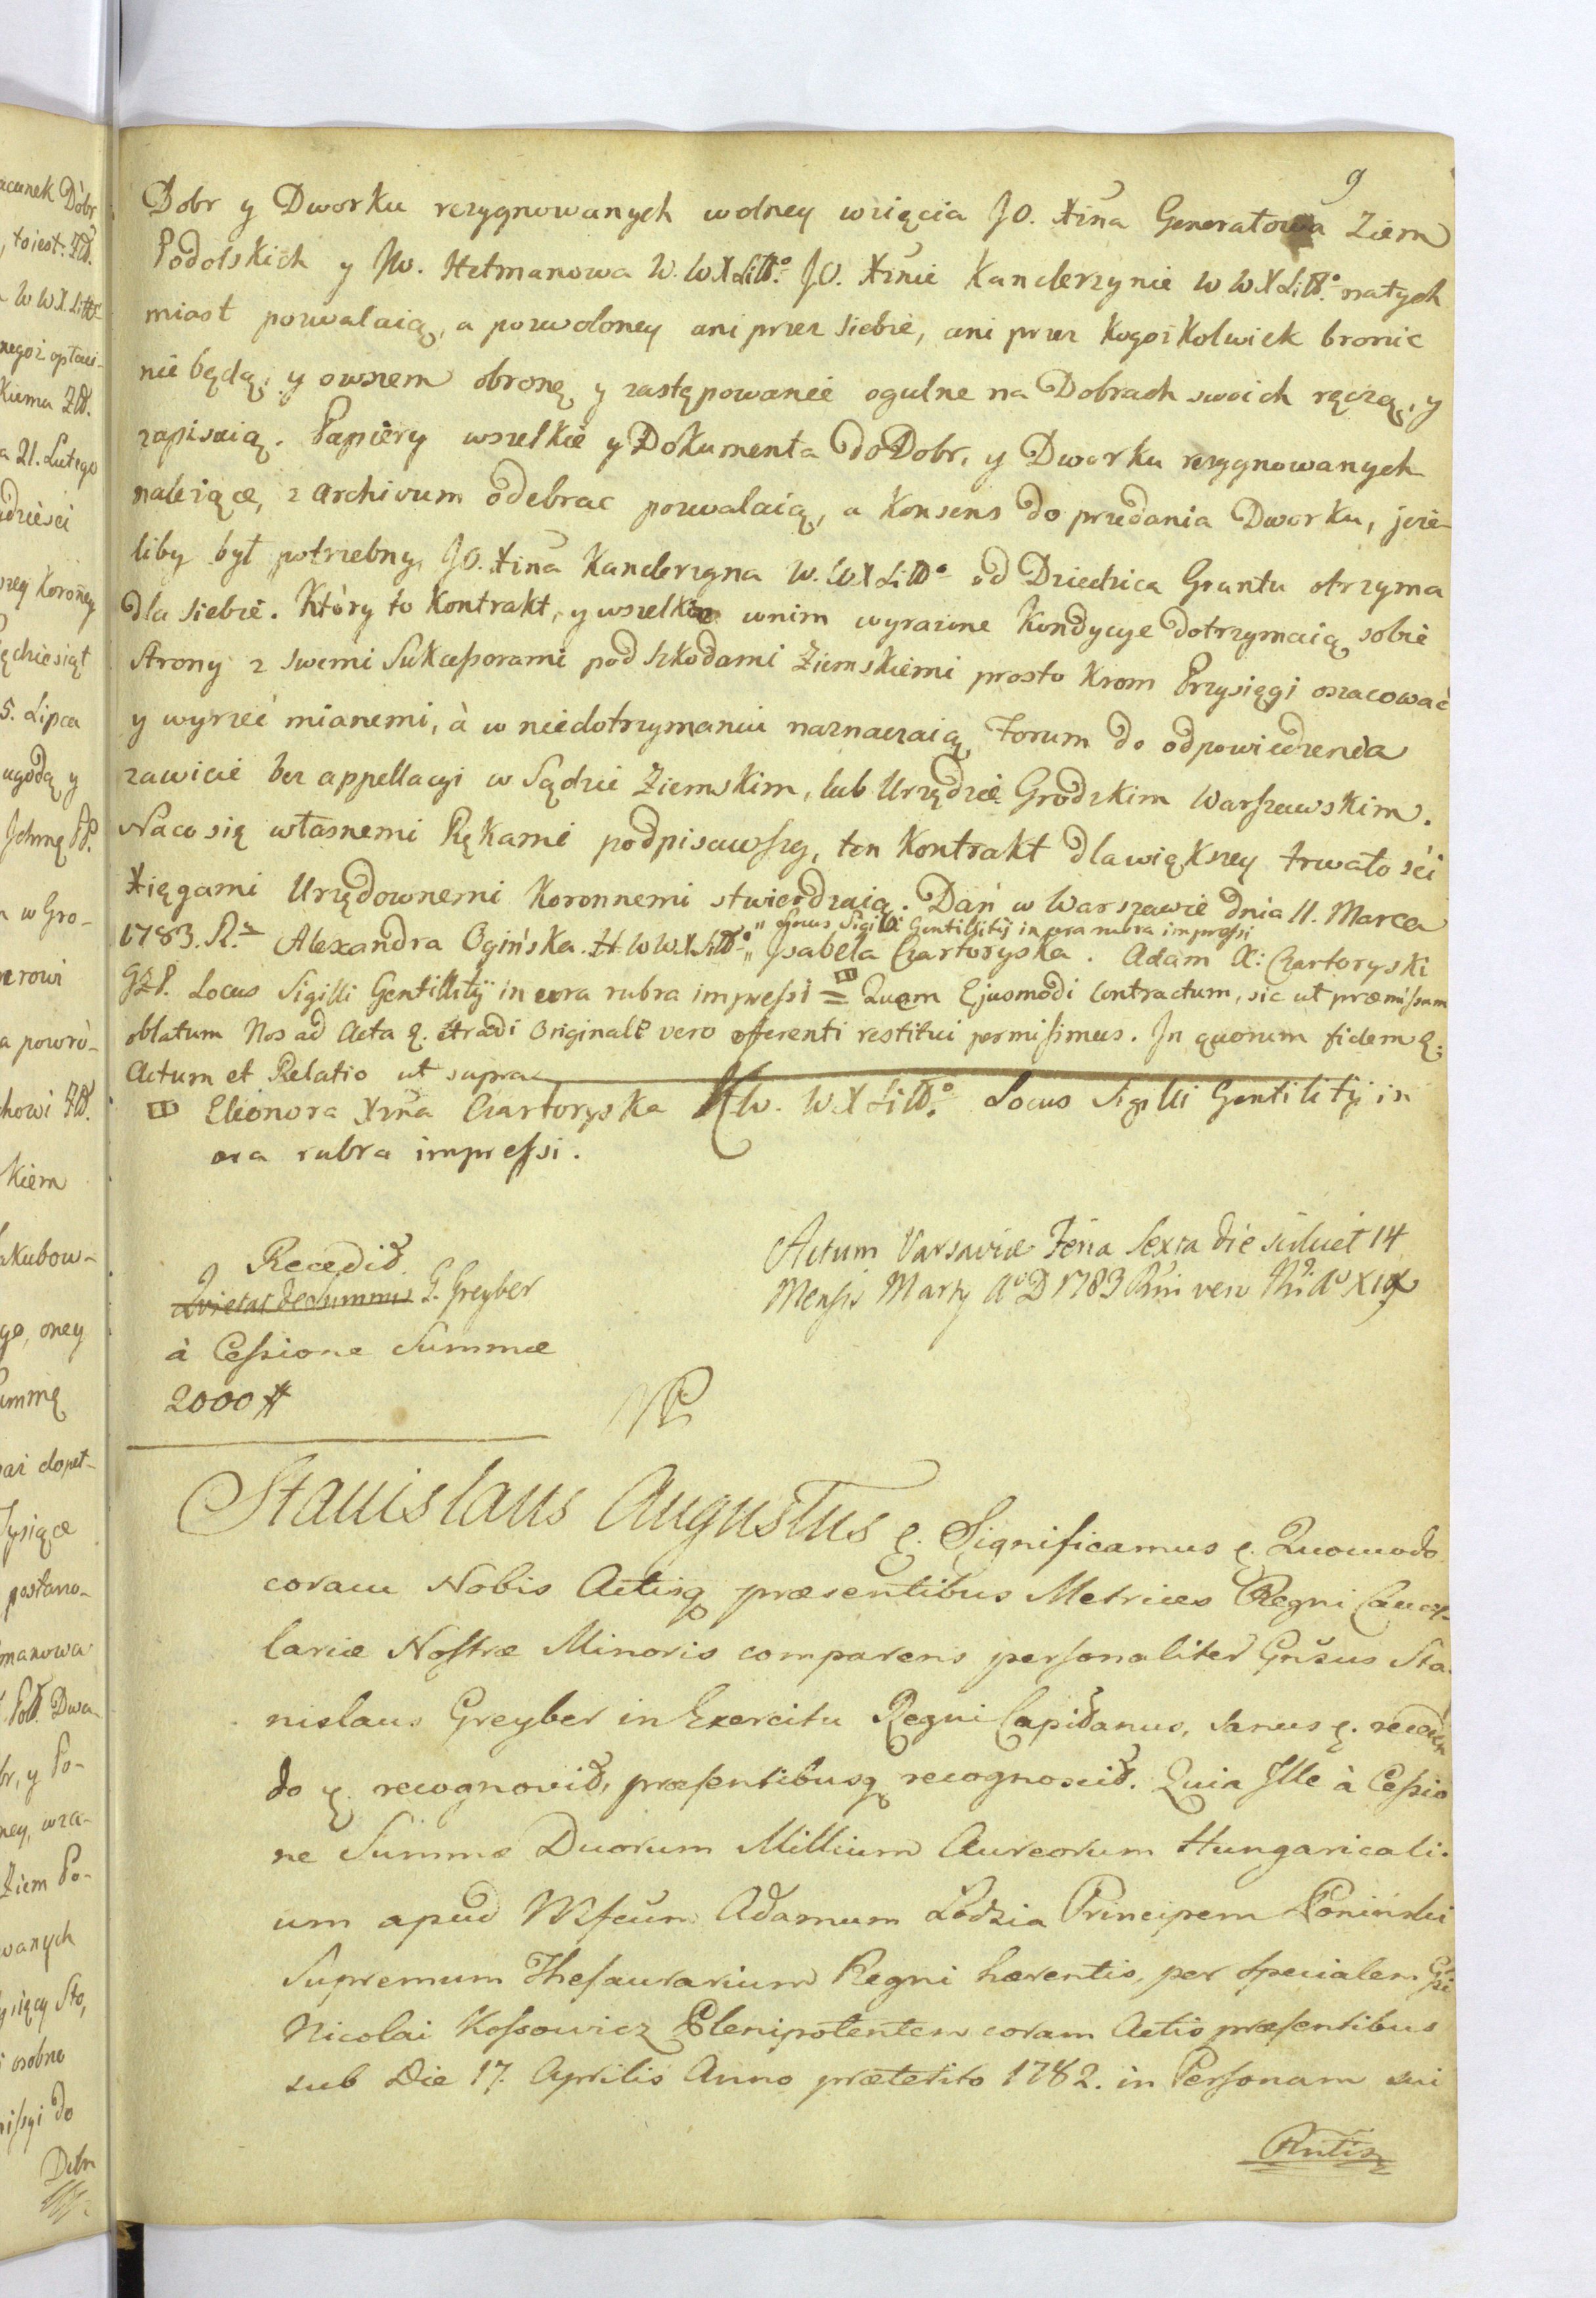 9
Dobr y Dworku rezygnowanych wolney wzięcia JO. Xżna Generałowa Ziem
Podolskich y JW. Hetmanowa W. W X Litt: JO. Xżnie Kanclerzynie W W X Litt: natych
miast pozwalaią, a pozwoloney ani przez siebie, ani przez kogożkolwiek bronic
nie będą, y owszem obronę y zastępowanie ogulne na Dobrach swoich ręczą, y
zapisuią. Papiery wszelkie y Dokumenta do Dobr, y Dworku rezygnowanych
należące, z Archivum odebrac pozwalaią, a Konsens do przedania Dworku, jeże-
liby był potrzebny, JO. Xżna Kanclerzyna W. W X Litt: od Dziedzica Gruntu otrzyma
dla siebie. Który to Kontrakt, y wszelkie w nim wyrażone Kondycye dotrzymaią sobie
Strony z swemi Sukcessorami pod szkodami Ziemskiemi prosto krom Przysięgi oszacować
y wyrzeć mianemi, à w niedotrzymaniu naznaczaią Forum do odpowiedzenia
zawicie bez appellacyi w Sądzie Ziemskim, lub Urzędzie Grodzkim Warszawskim.
Na co się własnemi Rękami podpisawszy, ten Kontrakt dla większey trwałości
Xięgami Urzędownemi Koronnemi stwierdzaią. Dań w Warszawie dnia 11. Marca
" Locus Sigilli Gentilitij in cera rubra impressi
1783. R. Alexandra Ogińska H W W X Litt: " Isabela Czartoryska. Adam X: Czartoryski
GZP. Locus Sigilli Gentilitij in cera rubra impressi = Quem Ejusmodi Contractum, sic ut præmissum
oblatum Nos ad Acta &. ètradi Originale vero offerenti restitui permisimus. In quorum fidem &.
Actum et Relatio ut supra
Eleonora Xżna Czartoryska KW. W X Litt: Locus Sigilli Gentilitij in
cera rubra impressi.
Actum Varsaviæ Feria Sexta die scilicet 14
Mensis Martij A D 1783 Rni vero Nri A XIX
Recedit
Quietat de Summis G. Greyber
à Cessione Summæ
2000 #
Stanislaus Augustus &. Significamus &. Quomodo
coram Nobis Actisq præsentibus Metrices Regni Cancel-
lariæ Nostræ Minoris comparens personaliter Gnsus Sta-
nislaus Greyber in Exercitu Regni Capitanus, sanus &. receden
do &. recognovit, præsentibusq recognoscit. Quia Ille à Cessio
ne Summæ Duorum Millium Aureorum Hungaricali-
um apud Mfcum Adamum Lodzia Principem Poniński
Supremum Thesaurarium Regni hærentis, per specialem Gsi
Nicolai Kossowicz Plenipotentem coram Actis præsentibus
sub Die 17. Aprilis Anno præterito 1782. in Personam sui